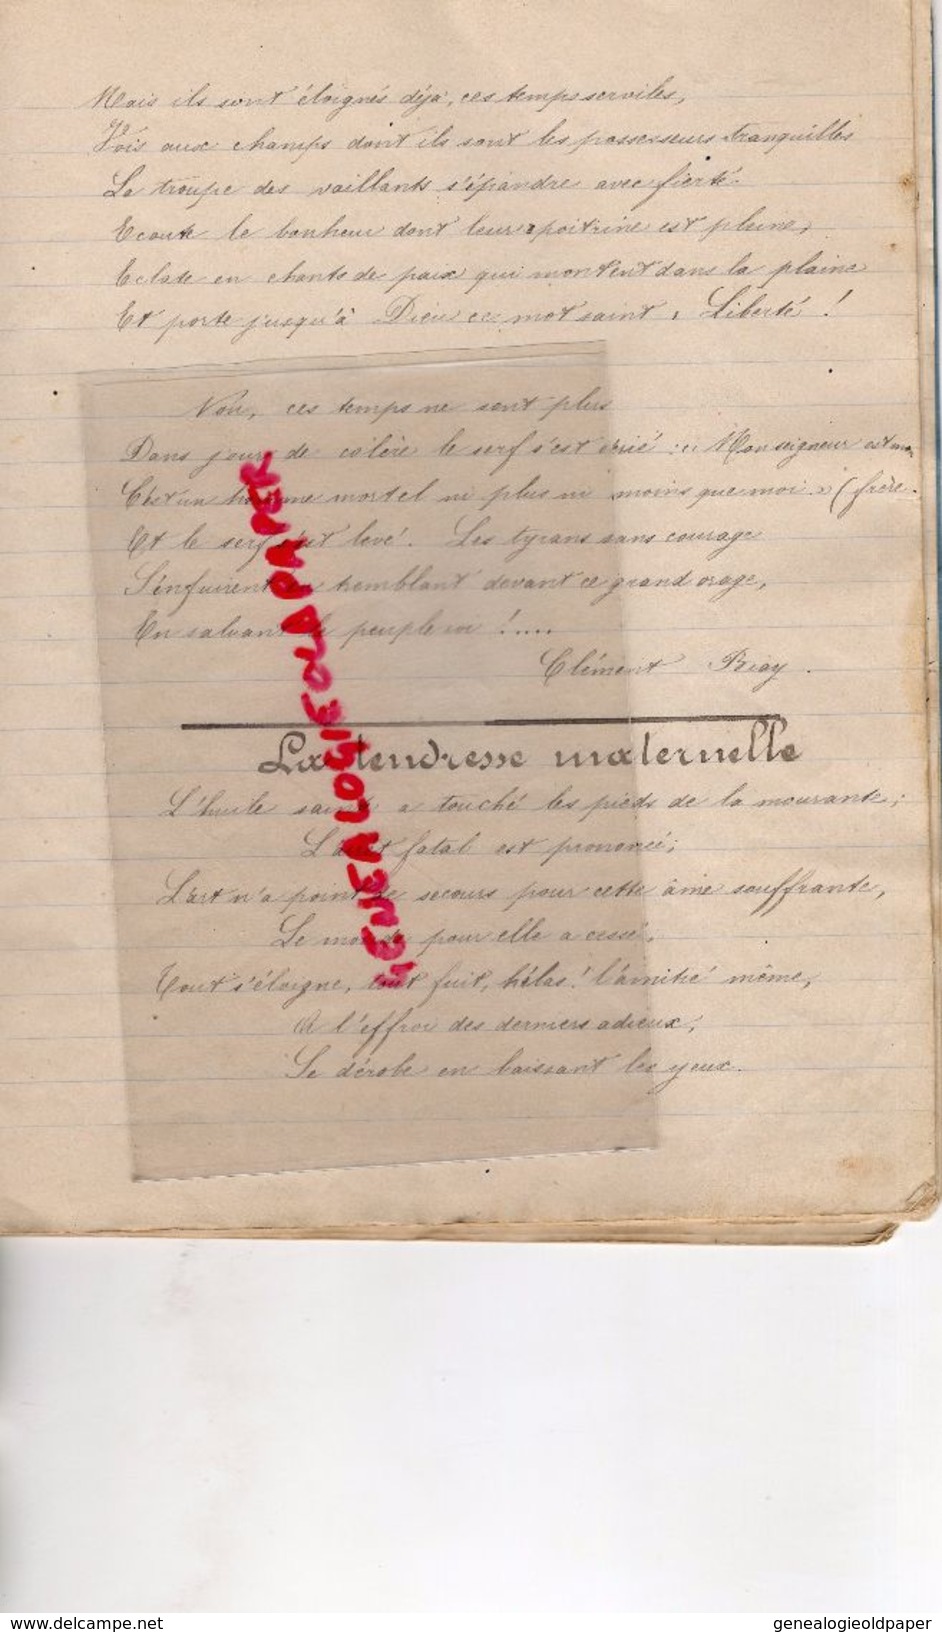 Mais ils sont éloignés déjà, ces temps serviles,
Vois aux champs dont ils sont les possesseurs tranquilles
La troupe des vaillants s'épandre avec fierté.
Ecoute le bonheur dont leur poitrine est pleine,
Eclate en chants de paix qui montent dans la plaine
Et porte jusqu'à Dieu ce mot saint, Liberté !
Non, ces temps ne sont plus
Dans jour de colère le serf s'est écrié : « Monseigneur est mon
C'est un homme mortel ni plus ni moins que moi. » (frère.
Et le serf s'est levé. Les tyrans sans courage
S'enfuirent en tremblant devant ce grand orage,
En saluant le peuple roi !....
Clément
La tendresse maternelle
L'huile sainte a touché les pieds de la mourante ;
L'arrêt fatal est prononcé ;
L'art n'a point de secours pour cette âme souffrante,
Le monde pour elle a cessé.
Tout s'éloigne, tout fuit, hélas ! l'amitié même,
A l'effroi des derniers adieux,
Se dérobe en baissant les yeux.
GENEALOGIEOLDPAPER
delcampe.net
genealogieoldpaper